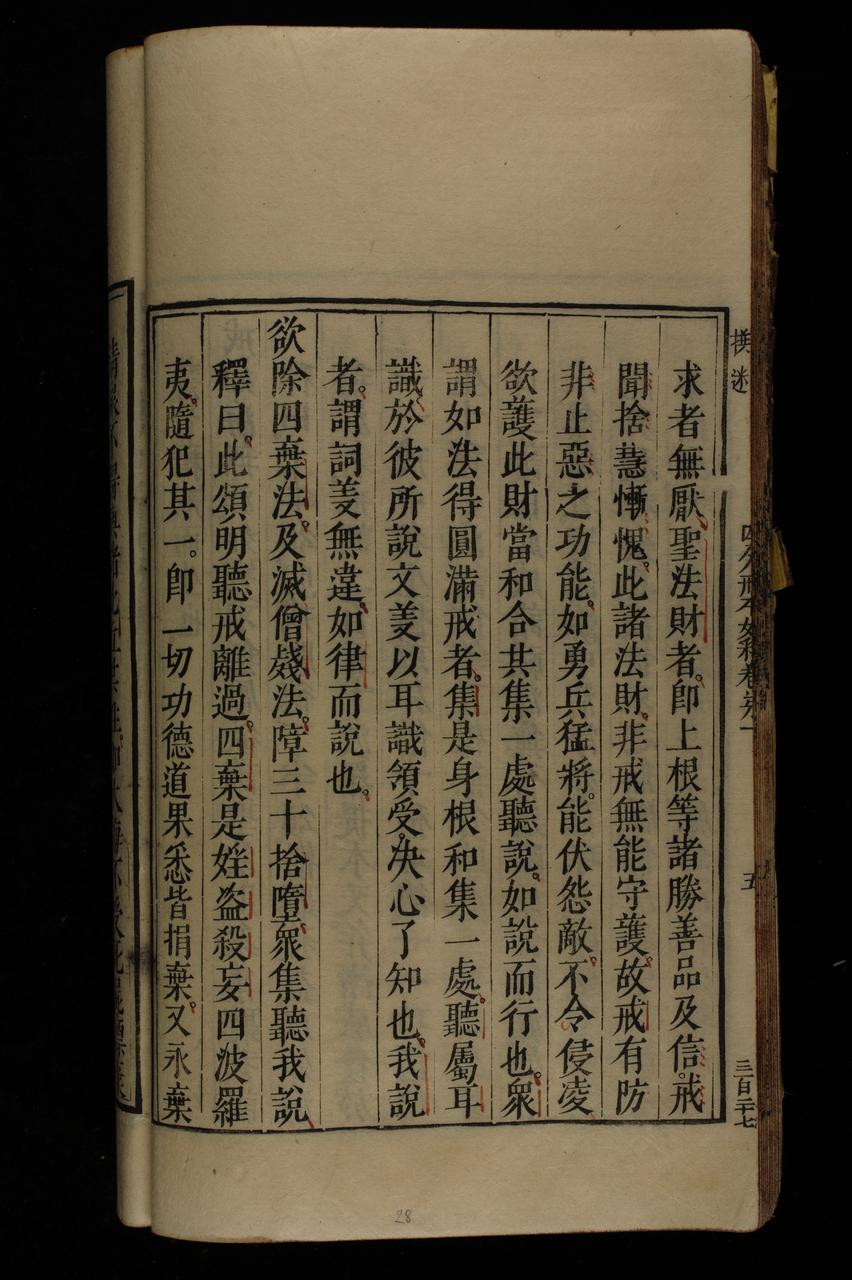 撰述
四分戒本如釋卷第一 五 三百二十七
求者無厭聖法財者卽上根等諸勝善品及信戒
聞捨慧慚愧此諸法財非戒無能守護故戒有防
非止惡之功能如勇兵猛將能伏怨敵不令侵凌
欲護此財當和合共集一處聽說如說而行也衆
謂如法得圓滿戒者集是身根和集一處聽屬耳
識於彼所說文義以耳識領受決心了知也我說
者謂詞義無違如律而說也
欲除四棄法及滅僧殘法障三十捨墮衆集聽我說
釋曰此頌明聽戒離過四棄是婬盜殺妄四波羅
夷隨犯其一卽一切功德道果悉皆捐棄又永棄
28